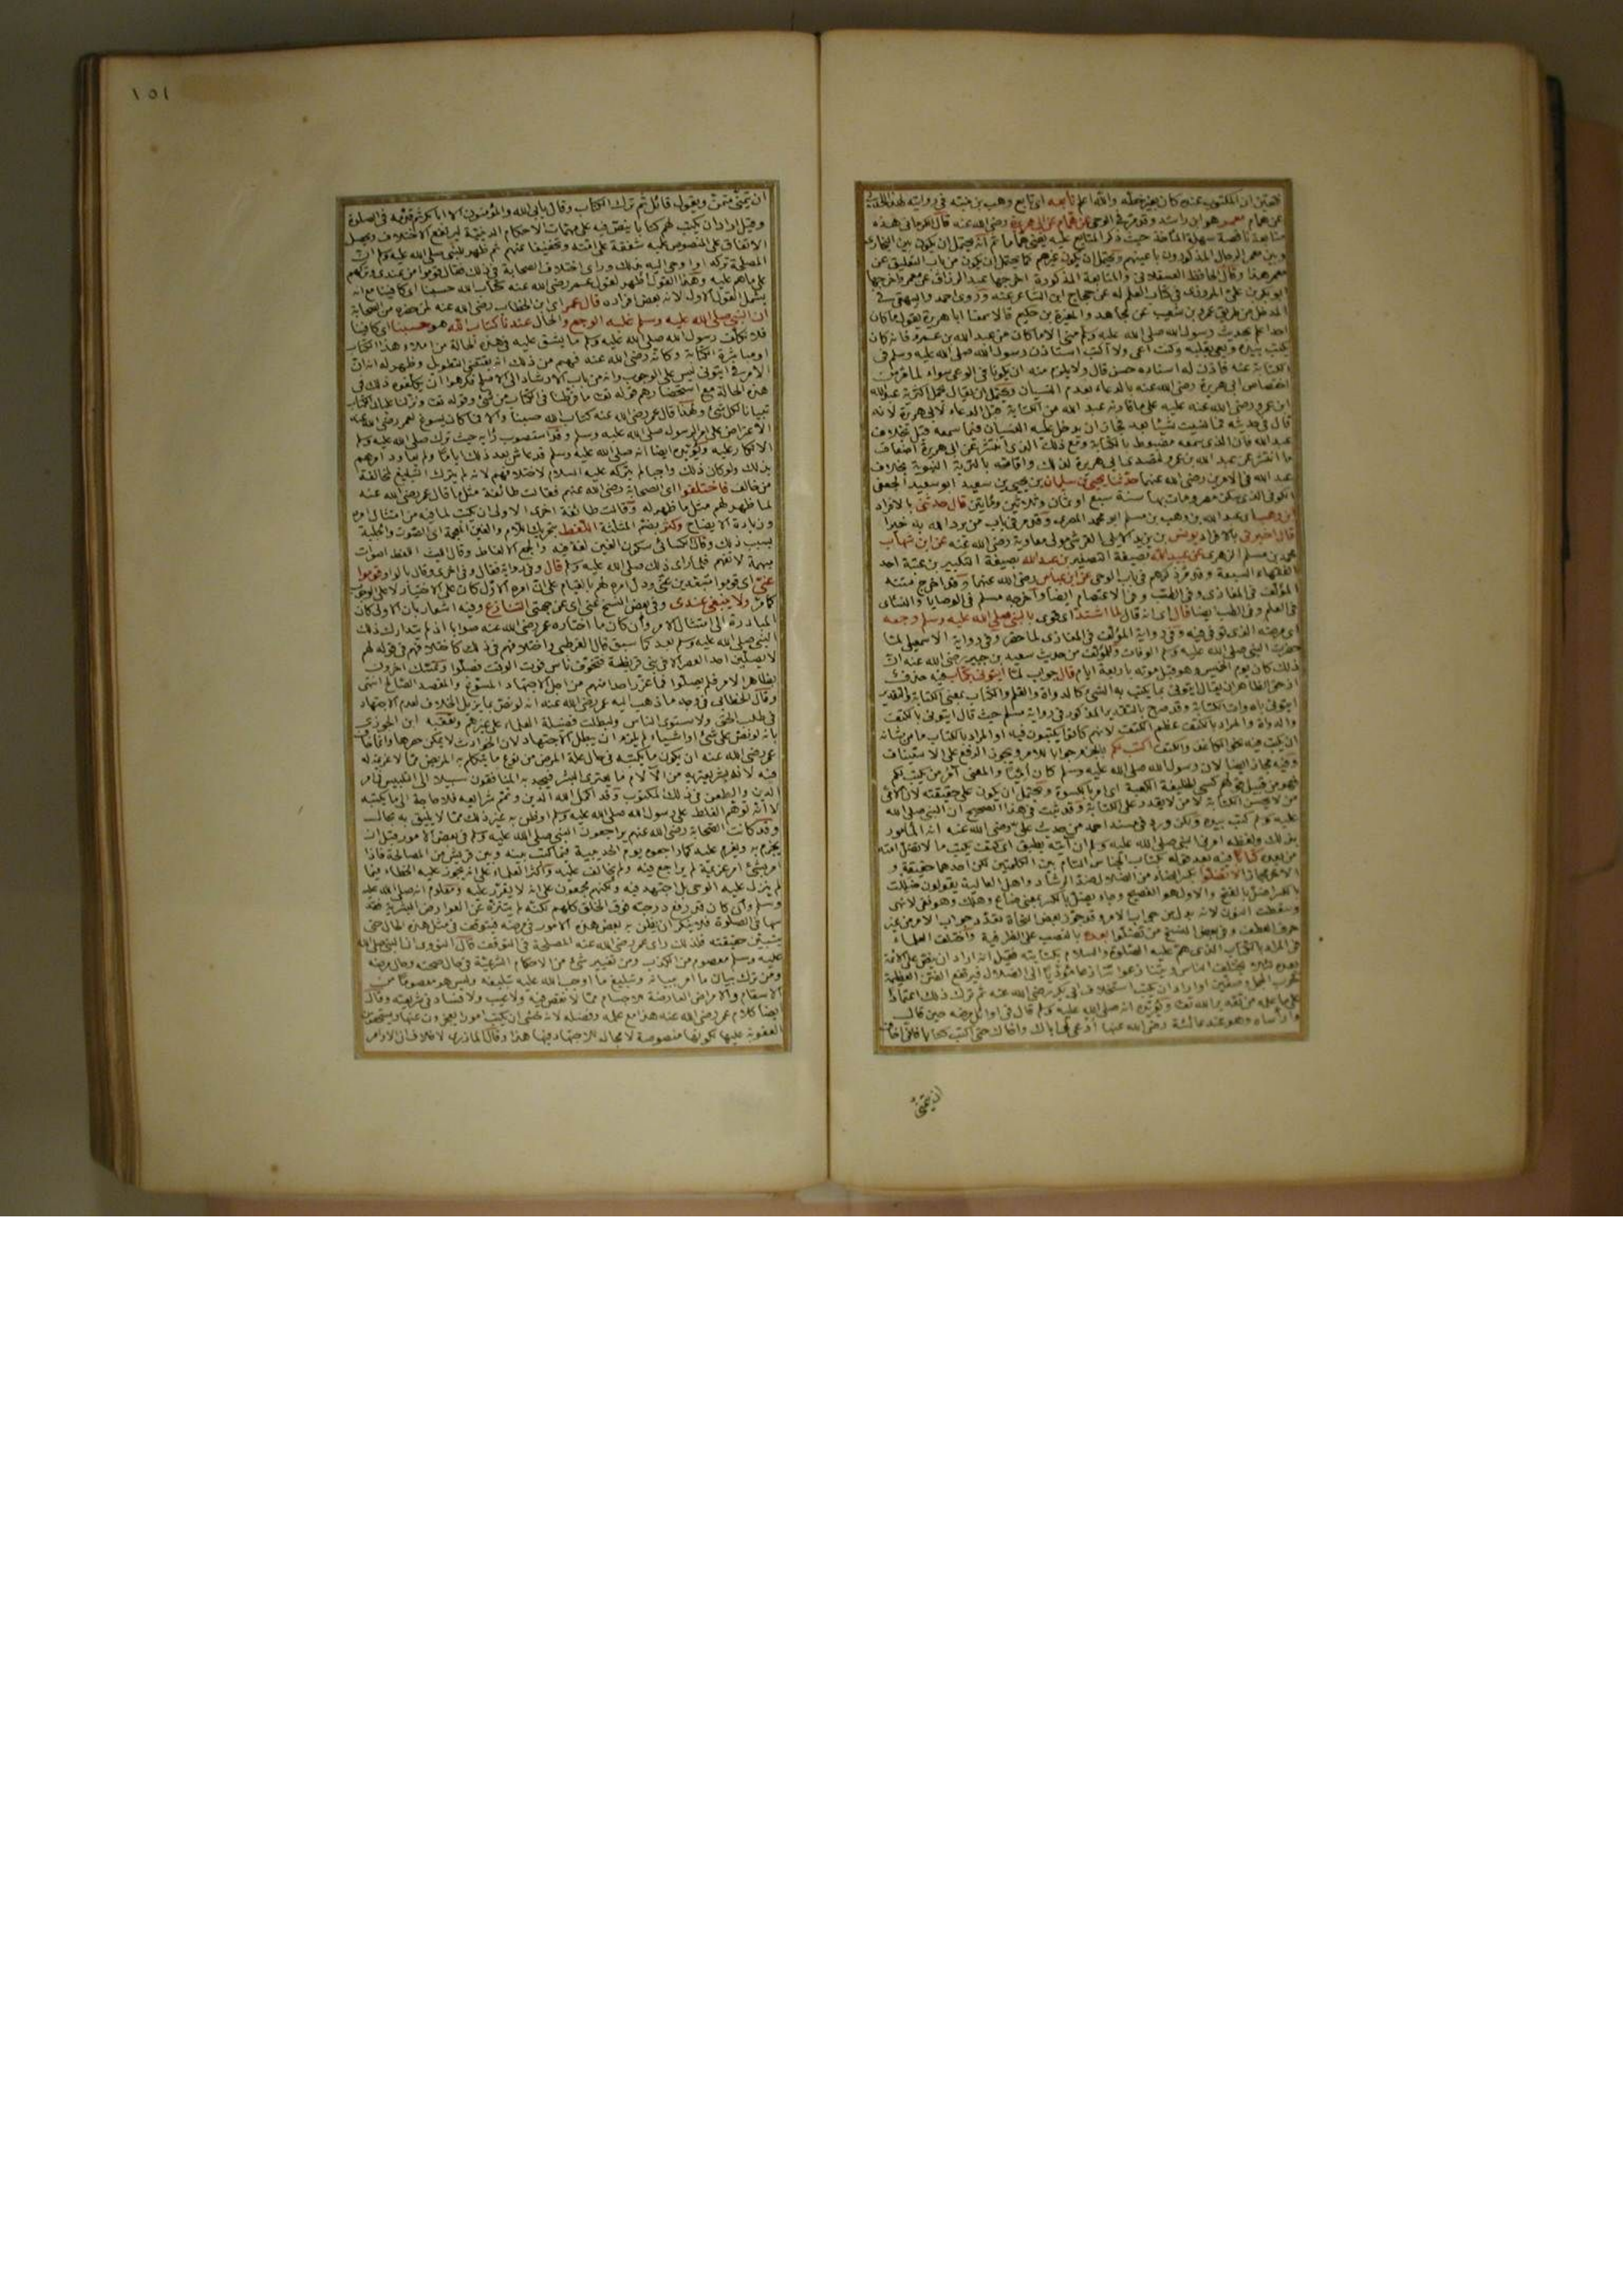 فتعين ان المكتوب عنده كان بغير خطه والله اعلم تابعه اى تابع وهب بن منبه فى روايته لهذا الحديث
عن همام معمر هو ابن راشد وقد مر فى الوحى عن همام عن ابى هريرة رضى الله عنه قال الكرمانى هذه
متابعة ناقصة سهلة المأخذ حيث ذكر المتابع عليه يعنى هماما ثم انه يحتمل ان يكون بين البخارى
وبين معمر الرجال المذكورون باعينهم ويحتمل ان يكون غيرهم كما يحتمل ان يكون من باب التعليق عن
معمر هذا وقال الحافظ العسقلانى والمتابعة المذكورة اخرجها عبد الرزاق عن معمر واخرجها
ابو بكر بن على المروزى فى كتاب العلم له عن حجاج ابن الشاعر عنه وروى احمد والبيهقى فى
المدخل من طريق عمرو بن شعيب عن مجاهد والمغيرة بن حكيم قالا سمعنا ابا هريرة يقول ما كان
احد اعلم بحديث رسول الله صلى الله عليه وسلم منى الا ما كان من عبد الله بن عمرو فانه كان
يكتب بيده ويعى بقلبه وكنت اعى ولا اكتب استاذن رسول الله صلى الله عليه وسلم فى
الكتابة عنه فاذن له اسناده حسن قال ولا يلزم منه ان يكونا فى الوعى سواء لما مر من
اختصاص ابى هريرة رضى الله عنه بالدعاء بعدم النسيان ويحتمل ان يقال تحمل اكثرية عبد الله
ابن عمرو رضى الله عنه عليه على ما فاز به عبد الله من الكتابة قبل الدعاء لابى هريرة لانه
قال فى حديثه فما نسيت شيئا بعد فجاز ان يدخل عليه النسيان فيما سمعه قبل بخلاف
عبد الله فان الذى سمعه مضبوط بالكتابة ومع ذلك الذى انتشر عن ابى هريرة اضعاف
ما انتشر عن عبد الله بن عمرو لتصدى ابى هريرة لذلك واقامته بالمدينة النبوية بخلاف
عبد الله فى الامرين رضى الله عنهما حدثنا يحيى بن سليمان بن يحيى بن سعيد ابو سعيد الجعفى
الكوفى الذى سكن مصر ومات بها سنة سبع او ثمان وثلاثين ومائتين قال حدثنى بالافراد
ابن وهب عبد الله بن وهب بن مسلم ابو محمد المصرى وقد مر فى باب من يرد الله به خيرا
قال اخبرنى بالافراد يونس بن يزيد الايلى القرشى مولى معاوية رضى الله عنه عن ابن شهاب
محمد بن مسلم الزهرى عن عبيد الله بصيغة التصغير بن عبد الله بصيغة التكبير بن عتبة احد
الفقهاء السبعة وقد مر ذكرهم فى باب الوحى عن ابن عباس رضى الله عنهما وقد اخرج متنه
المؤلف فى المغازى وفى الطب وفى الاعتصام ايضا واخرجه مسلم فى الوصايا والنسائى
فى العلم وفى الطب ايضا قال اى انه قال لما اشتد اى قوى بالنبى صلى الله عليه وسلم وجعه
اى مرضه الذى توفى فيه وفى رواية المؤلف فى المغازى لما حضر وفى رواية الاسمعيلى لما
حضرت النبى صلى الله عليه وسلم الوفات وللمؤلف من حديث سعيد بن جبير رضى الله عنه ان
ذلك كان يوم الخميس وهو قبل موته باربعة ايام قال جواب لما ايتونى بكتاب فيه حذف
اذ حق الظاهر ان يقال ايتونى بما يكتب به الشئ كالدواة والقلم والكتاب بمعنى الكتابة والتقدير
ايتونى بادوات الكتابة وقد صرح بالتقدير المذكور فى رواية مسلم حيث قال ايتونى بالكتف
والدواة والمراد بالكتف عظم الكتف لانهم كانوا يكتبون فيه او المراد بالكتاب ما من شانه
ان يكتب فيه نحو الكاغذ والكتف اكتب لكم بالجزم جوابا للامر ويجوز الرفع على الاستيناف
وفيه مجاز ايضا لان رسول الله صلى الله عليه وسلم كان اميا والمعنى آمر من يكتب لكم
فهو من قبيل قولهم كسى الخليفة الكعبة اى امر بالكسوة ويحتمل ان يكون على حقيقته لان الامى
من لا يحسن الكتابة لا من لا يقدر على الكتابة وقد ثبت فى هذا الصحيح ان النبى صلى الله
عليه وسلم كتب بيده ولكن ورد فى مسند احمد من حديث على رضى الله عنه انه المأمور
بذلك ولفظه امرنى النبى صلى الله عليه وسلم ان آتيه بطبق اى كتف يكتب ما لا تضل امته
من بعده كتابا فيه بعد قوله بكتاب الجناس التام بين الكلمتين لكن احدهما حقيقة و
الاخرى مجاز لا تضلوا بكسر الضاد من الضلال ضد الرشاد واهل العالية يقولون ضللت
بالكسر اضل بالفتح والاول هو الفصيح وجاء يضل بالكسر بمعنى ضاع وهلك وهو نفى لا نهى
وسقطت النون لانه بدل من جواب الامر وقد جوز بعض النحاة تعدد جواب الامر من غير
حرف العطف وفى بعض النسخ من تضلوا بعده بالنصب على الظرفية واختلف العلماء
فى المراد بالكتاب الذى هم عليه الصلوة والسلام بكتابته فقيل انه اراد ان ينص على الائمة
بعده لئلا يختلف الناس ويتنازعوا تنازعا مؤديا الى الضلال فيرتفع الفتن العظيمة
كحرب الجمل وصفين او اراد ان يكتب استخلاف ابى بكر رضى الله عنه ثم ترك ذلك اعتمادا
على ما علمه من تقدير الله تعالى ويؤيده انه صلى الله عليه وسلم قال فى اوائل مرضه حين قال
وارأساه وهو عند عائشة رضى الله عنها ادعى لى اباك واخاك حتى اكتب كتابا فانى اخاف
ان يتمنى
١٥١
ان يتمنى متمن ويقول قائل ثم ترك الكتاب وقال يابى الله والمؤمنون الا ابا بكر ثم قدمه فى الصلوة
وقيل اراد ان يكتب لهم كتابا ينص فيه على مهمات الاحكام الدينية ليرتفع الاختلاف ويحصل
الاتفاق على المنصوص عليه شفقة على امته وتخفيفا عنهم ثم ظهر للنبى صلى الله عليه وسلم ان
المصلحة تركه او اوحى اليه بذلك وراى اختلاف الصحابة فى ذلك فقال قوموا من عندى وتركهم
على ما هم عليه وهذا القول اظهر لقول عمر رضى الله عنه كتاب الله حسبنا اى كافينا مع انه
يشمل القول الاول لانه بعض افراده قال عمر اى ابن الخطاب رضى الله عنه لمن حضره من الصحابة
ان النبى صلى الله عليه وسلم غلبه الوجع والحال عندنا كتاب الله هو حسبنا اى كافينا
فلا نكلف رسول الله صلى الله عليه وسلم ما يشق عليه فى هذه الحالة من املاء هذا الكتاب
او مباشرة الكتابة وكانه رضى الله عنه فهم من ذلك انه يقتضى التطويل وظهر له ان
الامر فى ايتونى ليس على الوجوب وانه من باب الارشاد الى الاصلح فكرهوا ان يكلفوه ذلك فى
هذه الحالة مع استحضارهم قوله تعالى ما فرطنا فى الكتاب من شئ وقوله تعالى ونزلنا عليك الكتاب
تبيانا لكل شئ ولهذا قال عمر رضى الله عنه كتاب الله حسبنا والا فما كان يسوغ لعمر رضى الله عنه
الاعتراض على امر الرسول صلى الله عليه وسلم وقد استصوب رايه حيث ترك صلى الله عليه وسلم
الانكار عليه ويؤيده ايضا انه صلى الله عليه وسلم قد عاش بعد ذلك اياما ولم يعاود امرهم
بذلك ولو كان ذلك واجبا لم يتركه عليه السلام لاختلافهم لانه لم يترك التبليغ لمخالفة
من خالف فاختلفوا اى الصحابة رضى الله عنهم فقالت طائفة مثل ما قال عمر رضى الله عنه
لما ظهر لهم مثل ما ظهر له وقالت طائفة اخرى الاولى ان يكتب لما فيه من امتثال امره
وزيادة الايضاح وكثر بضم المثلثة اللغط بتحريك اللام والغين المعجمة اى الصوت والجلبة
بسبب ذلك وقال الكسائى سكون الغين لغة فيه والجمع الالغاط وقال الليث اللغط اصوات
مبهمة لا تفهم فلما راى ذلك صلى الله عليه وسلم قال وفى رواية فقال وفى اخرى وقال بالواو قوموا
عنى اى قوموا متبعدين عنى ودل امره لهم بالقيام على ان امره الاول كان على الاختيار لا على الوجوب
كما مر ولا ينبغى عندى وفى بعض النسخ عنى اى عن جهتى التنازع وفيه اشعار بان الاولى كان
المبادرة الى امتثال الامر وان كان ما اختاره عمر رضى الله عنه صوابا اذ لم يتدارك ذلك
النبى صلى الله عليه وسلم بعد كما سبق قال القرطبى واختلافهم فى ذلك كاختلافهم فى قوله لهم
لا يصلين احد العصر الا فى بنى قريظة فتخوف ناس فوت الوقت فصلوا وتمسك آخرون
بظاهر الامر فلم يصلوا فما عنف احدا منهم من اجل الاجتهاد المسوغ والمقصد الصالح انتهى
وقال الخطابى فى وجه ما ذهب اليه عمر رضى الله عنه انه لو نص بما يزيل الخلاف لعدم الاجتهاد
فى طلب الحق ولاستوى الناس ولبطلت فضيلة العلماء على غيرهم وتعقبه ابن الجوزى
بانه لو نص على شئ او اشياء لم يلزم ان يبطل الاجتهاد لان الحوادث لا يمكن حصرها وانما خاف
عمر رضى الله عنه ان يكون ما يكتبه فى حال غلبة المرض من نوع ما يتكلم به المريض مما لا عزيمة له
فيه لانه بشر يعتريه من الآلام ما يعترى البشر فيجد به المنافقون سبيلا الى التلبيس فى امر
الدين والطعن فى ذلك المكتوب وقد اكمل الله الدين وتمم شرايعه فلا حاجة الى ما يكتبه
لا انه توهم الغلط على رسول الله صلى الله عليه وسلم او ظن به غير ذلك مما لا يليق به بحال
وقد كانت الصحابة رضى الله عنهم يراجعون النبى صلى الله عليه وسلم فى بعض الامور قبل ان
يجزم به ويعزم عليه كما راجعوه يوم الحديبية فيما كتب بينه وبين قريش من المصالحة فاذا
امر بشئ امر عزيمة لم يراجع فيه ولم يخالف عليه واكثر العلماء على انه يجوز عليه الخطاء فيما
لم ينزل عليه الوحى بل اجتهد فيه ولكنهم مجمعون على انه لا يقرر عليه ومعلوم انه صلى الله عليه
وسلم وان كان قد رفع درجته فوق الخلق كلهم لكنه لم يتنزه عن العوارض البشرية فقد
سها فى الصلوة فلا ينكر ان يظن به بعض هذه الامور فى مرضه فيتوقف فى مثل هذه الحال حتى
يتبين حقيقته فلذلك راى عمر رضى الله عنه المصلحة فى التوقف قال النووى ان النبى صلى الله
عليه وسلم معصوم من الكذب ومن تغيير شئ من الاحكام الشرعية فى حال صحته وحال مرضه
ومن ترك بيان ما امر ببيانه وتبليغ ما اوجب الله عليه تبليغه وليس هو معصوما من
الاسقام والامراض العارضة للاجسام مما لا نقص فيه ولا عيب ولا فساد فى شريعته وقال
ايضا كلام عمر رضى الله عنه هذا مع علمه وفضله لانه خشى ان يكتب امورا يعجزون عنها ويستحقون
العقوبة عليها لكونها منصوصة لا مجال للاجتهاد فيها هذا وقال المازرى لا خلاف ان الاوامر